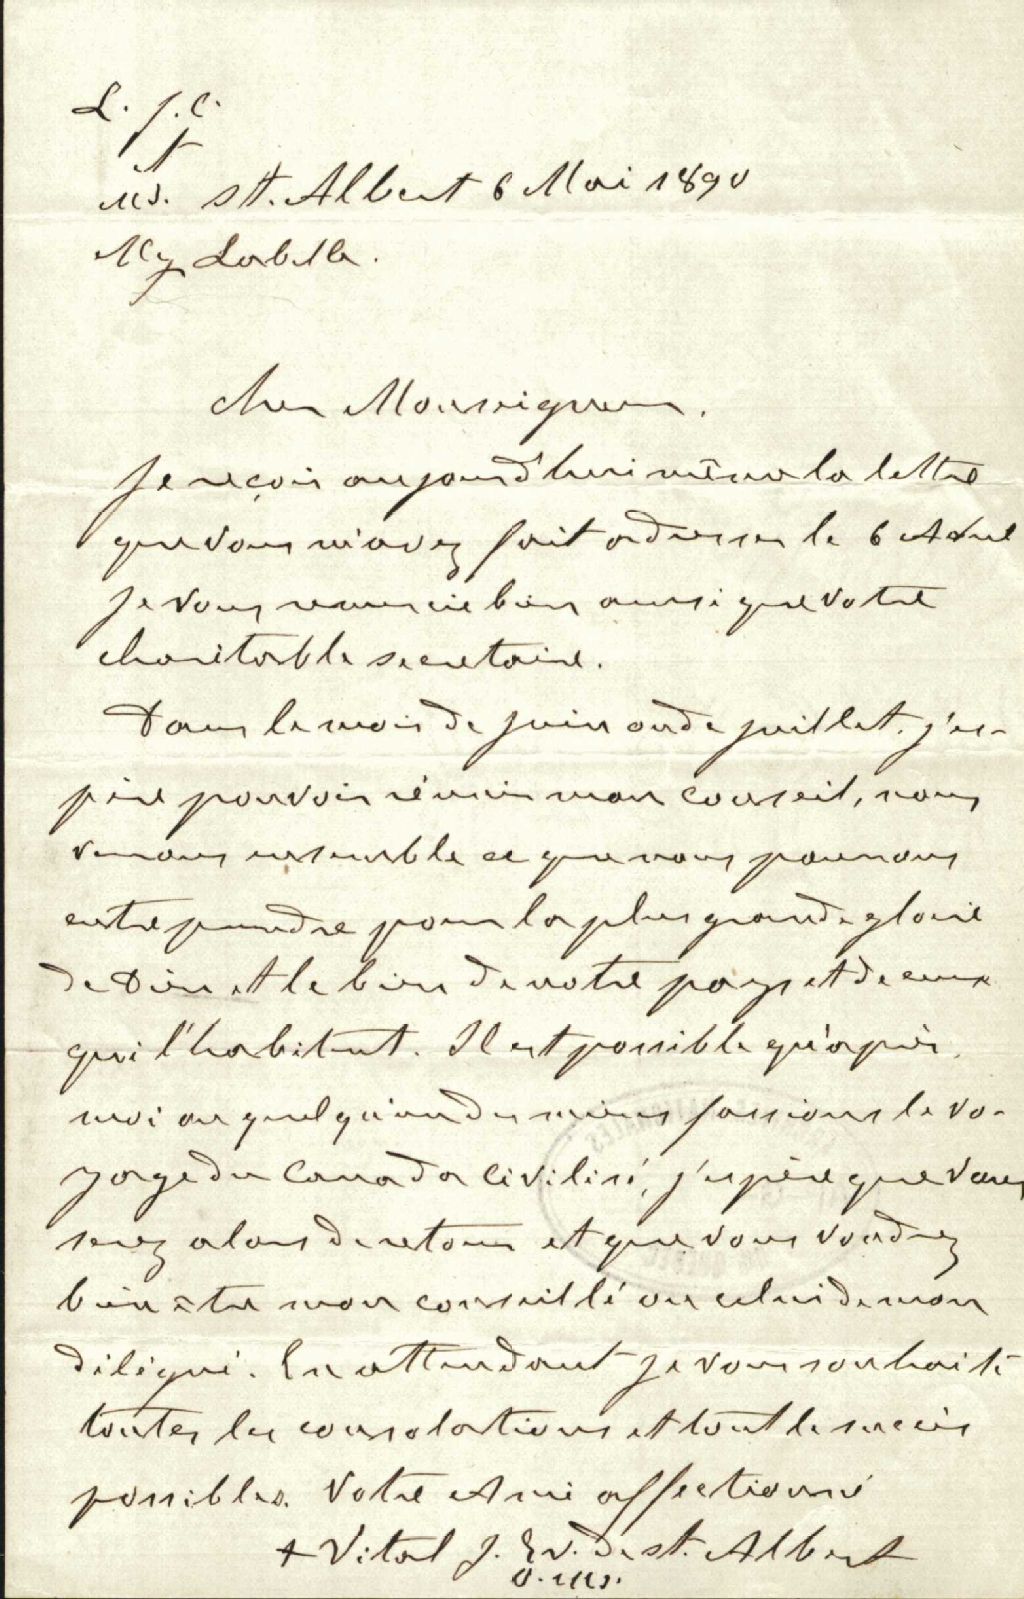 L. J. C.
et
M. I. St. Albert 6 Mai 1890
Mgr Labelle.
Cher Monseigneur.
Je reçois aujourd'hui même la lettre
que vous m'avez fait adresser le 6 Avril
Je vous remercie bien ainsi que votre
charitable secretaire.
Dans le mois de Juin ou de juillet. j'es-
père pouvoir réunir mon conseil, nous
verrons ensemble ce que nous pourrons
entreprendre pour la plus grande gloire
de Dieu et le bien de notre pays et de ceux
qui l'habitent. Il est possible qu'après
moi ou quelqu'un des miens fassions le vo-
yage du Canada civilisé, j'espère que vous
serez alors de retour et que vous voudrez
bien être mon conseillé ou celui de mon
délégué. En attendant je vous souhaite
toutes les consolations et tout le succès
possibles. Votre Ami affectionné
+ Vital J. Ev. de St. Albert
O.M.I.